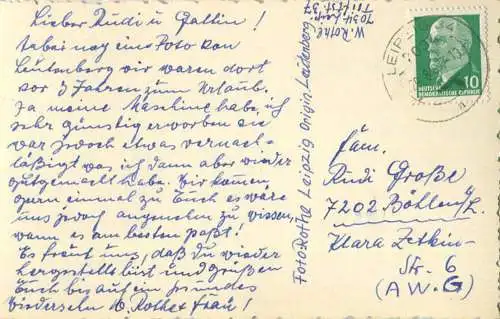 Lieber Rudi u. Gattin!
Anbei noch ein Foto von
Leutenberg wir waren dort
vor 3 Jahren zum Urlaub.
Ja meine Maschine habe ich
sehr günstig erworben sie
war jedoch etwas vernach-
läßigt was ich dann aber wieder
gutgemacht habe. Wir kommen
gern einmal zu Euch es wäre
uns jedoch angenehm zu wissen,
wann es am besten paßt!
Es freut uns, daß du wieder
hergestellt bist und grüßen
Euch bis auf ein gesundes
Wiedersehn W. Rothe u Frau!
Foto Rothe Leipzig Origin Leutenberg
W. Rothe
7034 Leipz
LEIPZIG
DEUTSCHE
DEMOKRATISCHE REPUBLIK
10
Fam.
Rudi Große
7202 Böhlen/L.
Klara Zetkin-
Str. 6
(AWG)